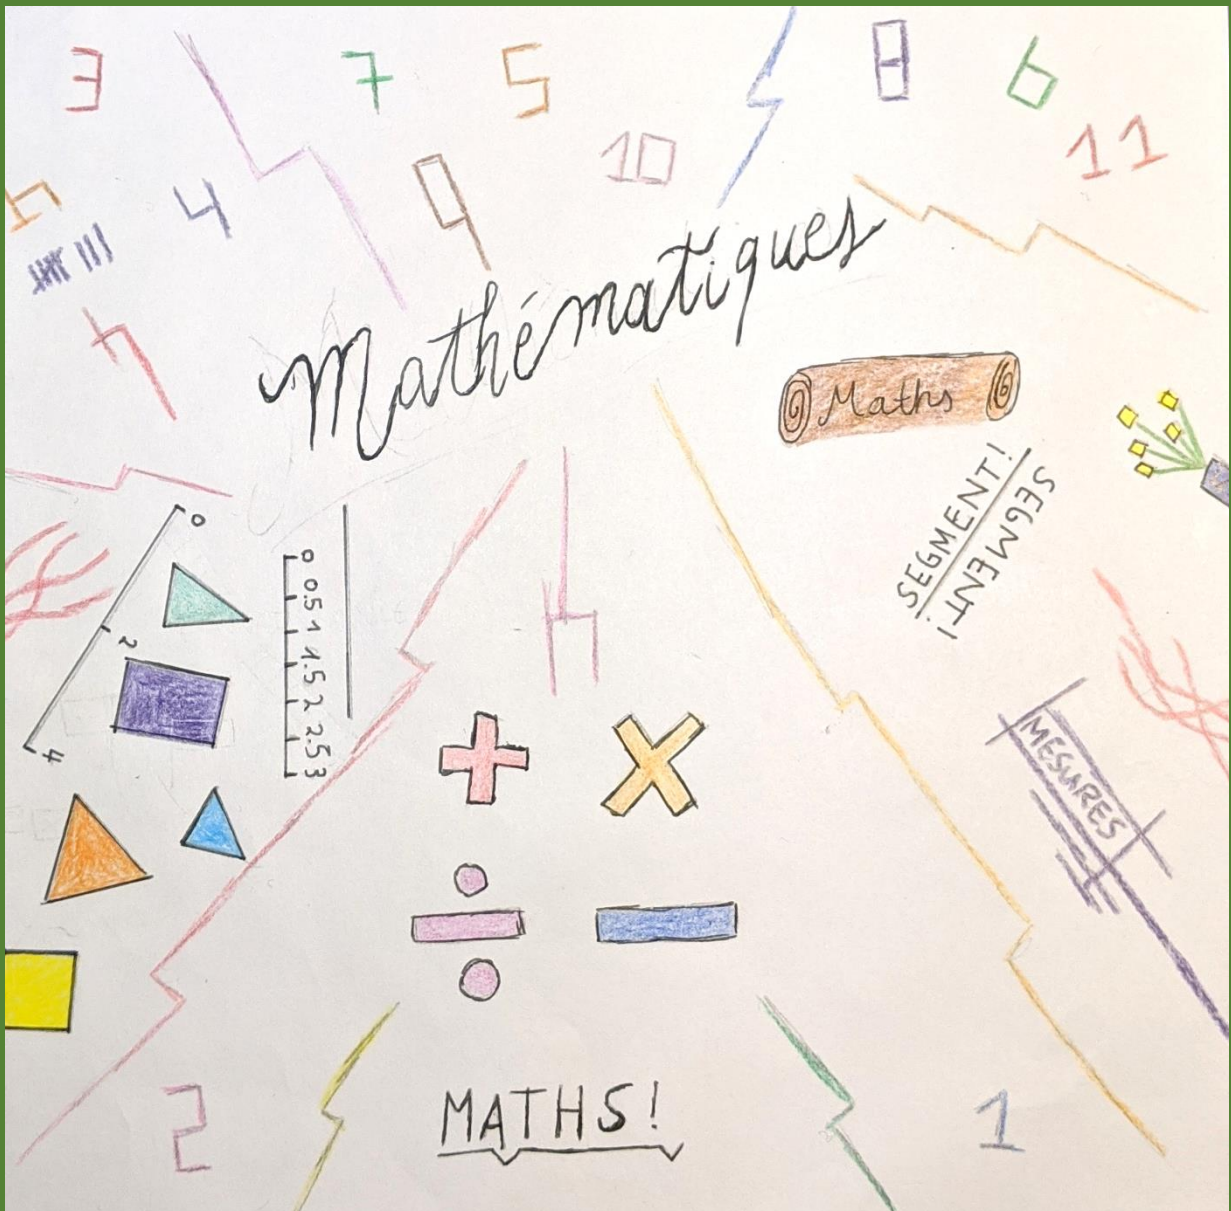 3
7
5
8
6
10
11
4
9
Mathématiques
Maths
SEGMENT!
SEGMENT!
0
2
4
0 0.5 1 1.5 2 2.5 3
MESURES
MATHS!
2
1